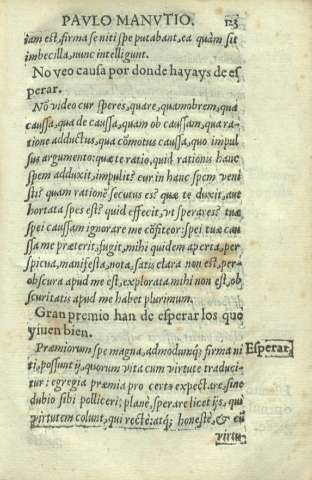 PAVLO MANVTIO. 123
iam est, firma se niti spe putabant, ea quàm sit
imbecilla, nunc intelligunt.
No veo causa por donde hayays de es
perar.
Nō video cur speres, quare, quamobrem, qua
caussa, qua de caussa, quam ob caussam, qua ra-
tione adductus, qua cōmotus caussa, quo impul
sus argumento: quæ te ratio, quid rationis hanc
spem adduxit, impulit? cur in hanc spem veni
sti? quam rationē secutus es? quæ te duxit, aut
hortata spes est? quid effecit, vt sperares? tuæ
spei caussam ignorare me cōfiteor: spei tuæ cau
ssa me præterit, fugit, mihi quidem aperta, per-
spicua, manifesta, nota, satis clara non est, per-
obscura apud me est, explorata mihi non est, ob
scuritatis apud me habet plurimum.
Gran premio han de esperar los que
viuen bien.
Præmiorum spe magna, admodumq; firma ni
ti, possunt ij, quorum vita cum virtute traduci-
tur: egregia præmia pro certo expectare, sino
dubio sibi polliceri: planè, sperare licet ijs, qui
virtutem colunt, qui rectè: atq; honestè, & cū
Esperar,
virtu-